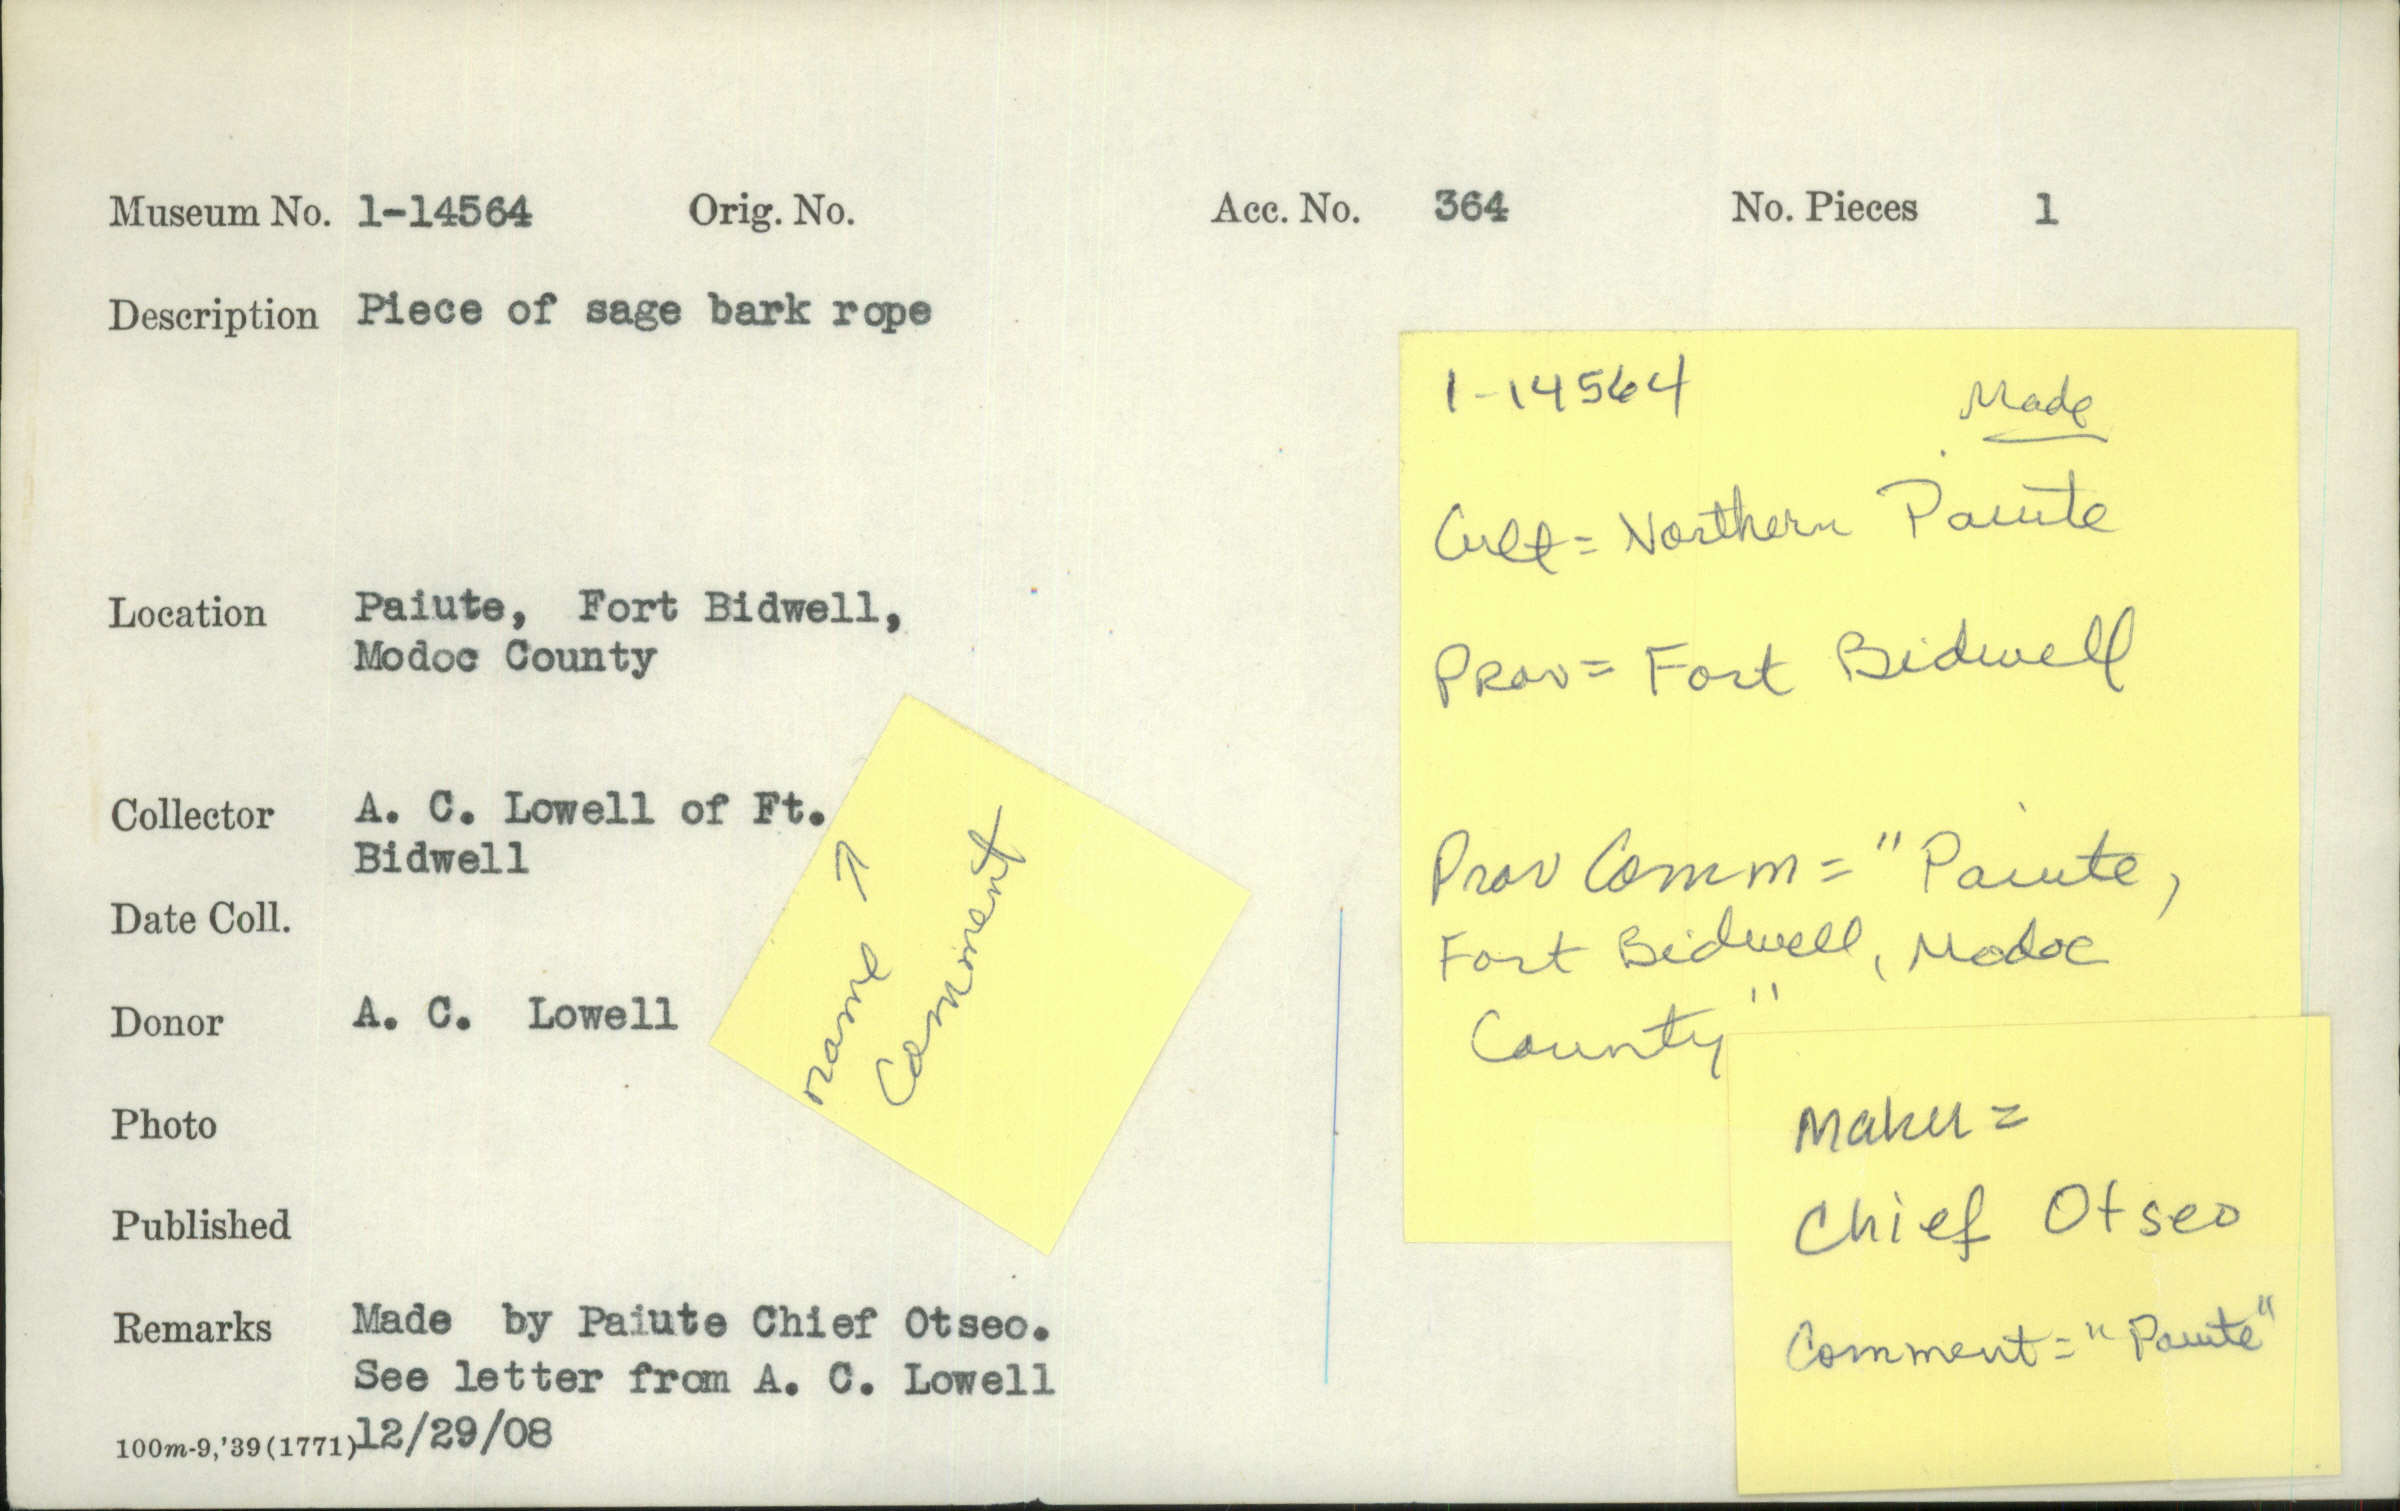 Museum No. 1-14564 Orig. No. Acc. No. 364 No. Pieces 1
Description Piece of sage bark rope
Location Paiute, Fort Bidwell,
Modoc County
Collector A. C. Lowell of Ft.
Bidwell
Date Coll.
Donor A. C. Lowell
Photo
Published
Remarks Made by Paiute Chief Otseo.
See letter from A. C. Lowell
12/29/08
100m-9,'39(1771)
name ↑
Comment
1-14564 Made
Cult = Northern Paiute
Prov = Fort Bidwell
Prov Comm = "Paiute,
Fort Bidwell, Modoc
County"
Maker =
Chief Otseo
Comment = "Paiute"